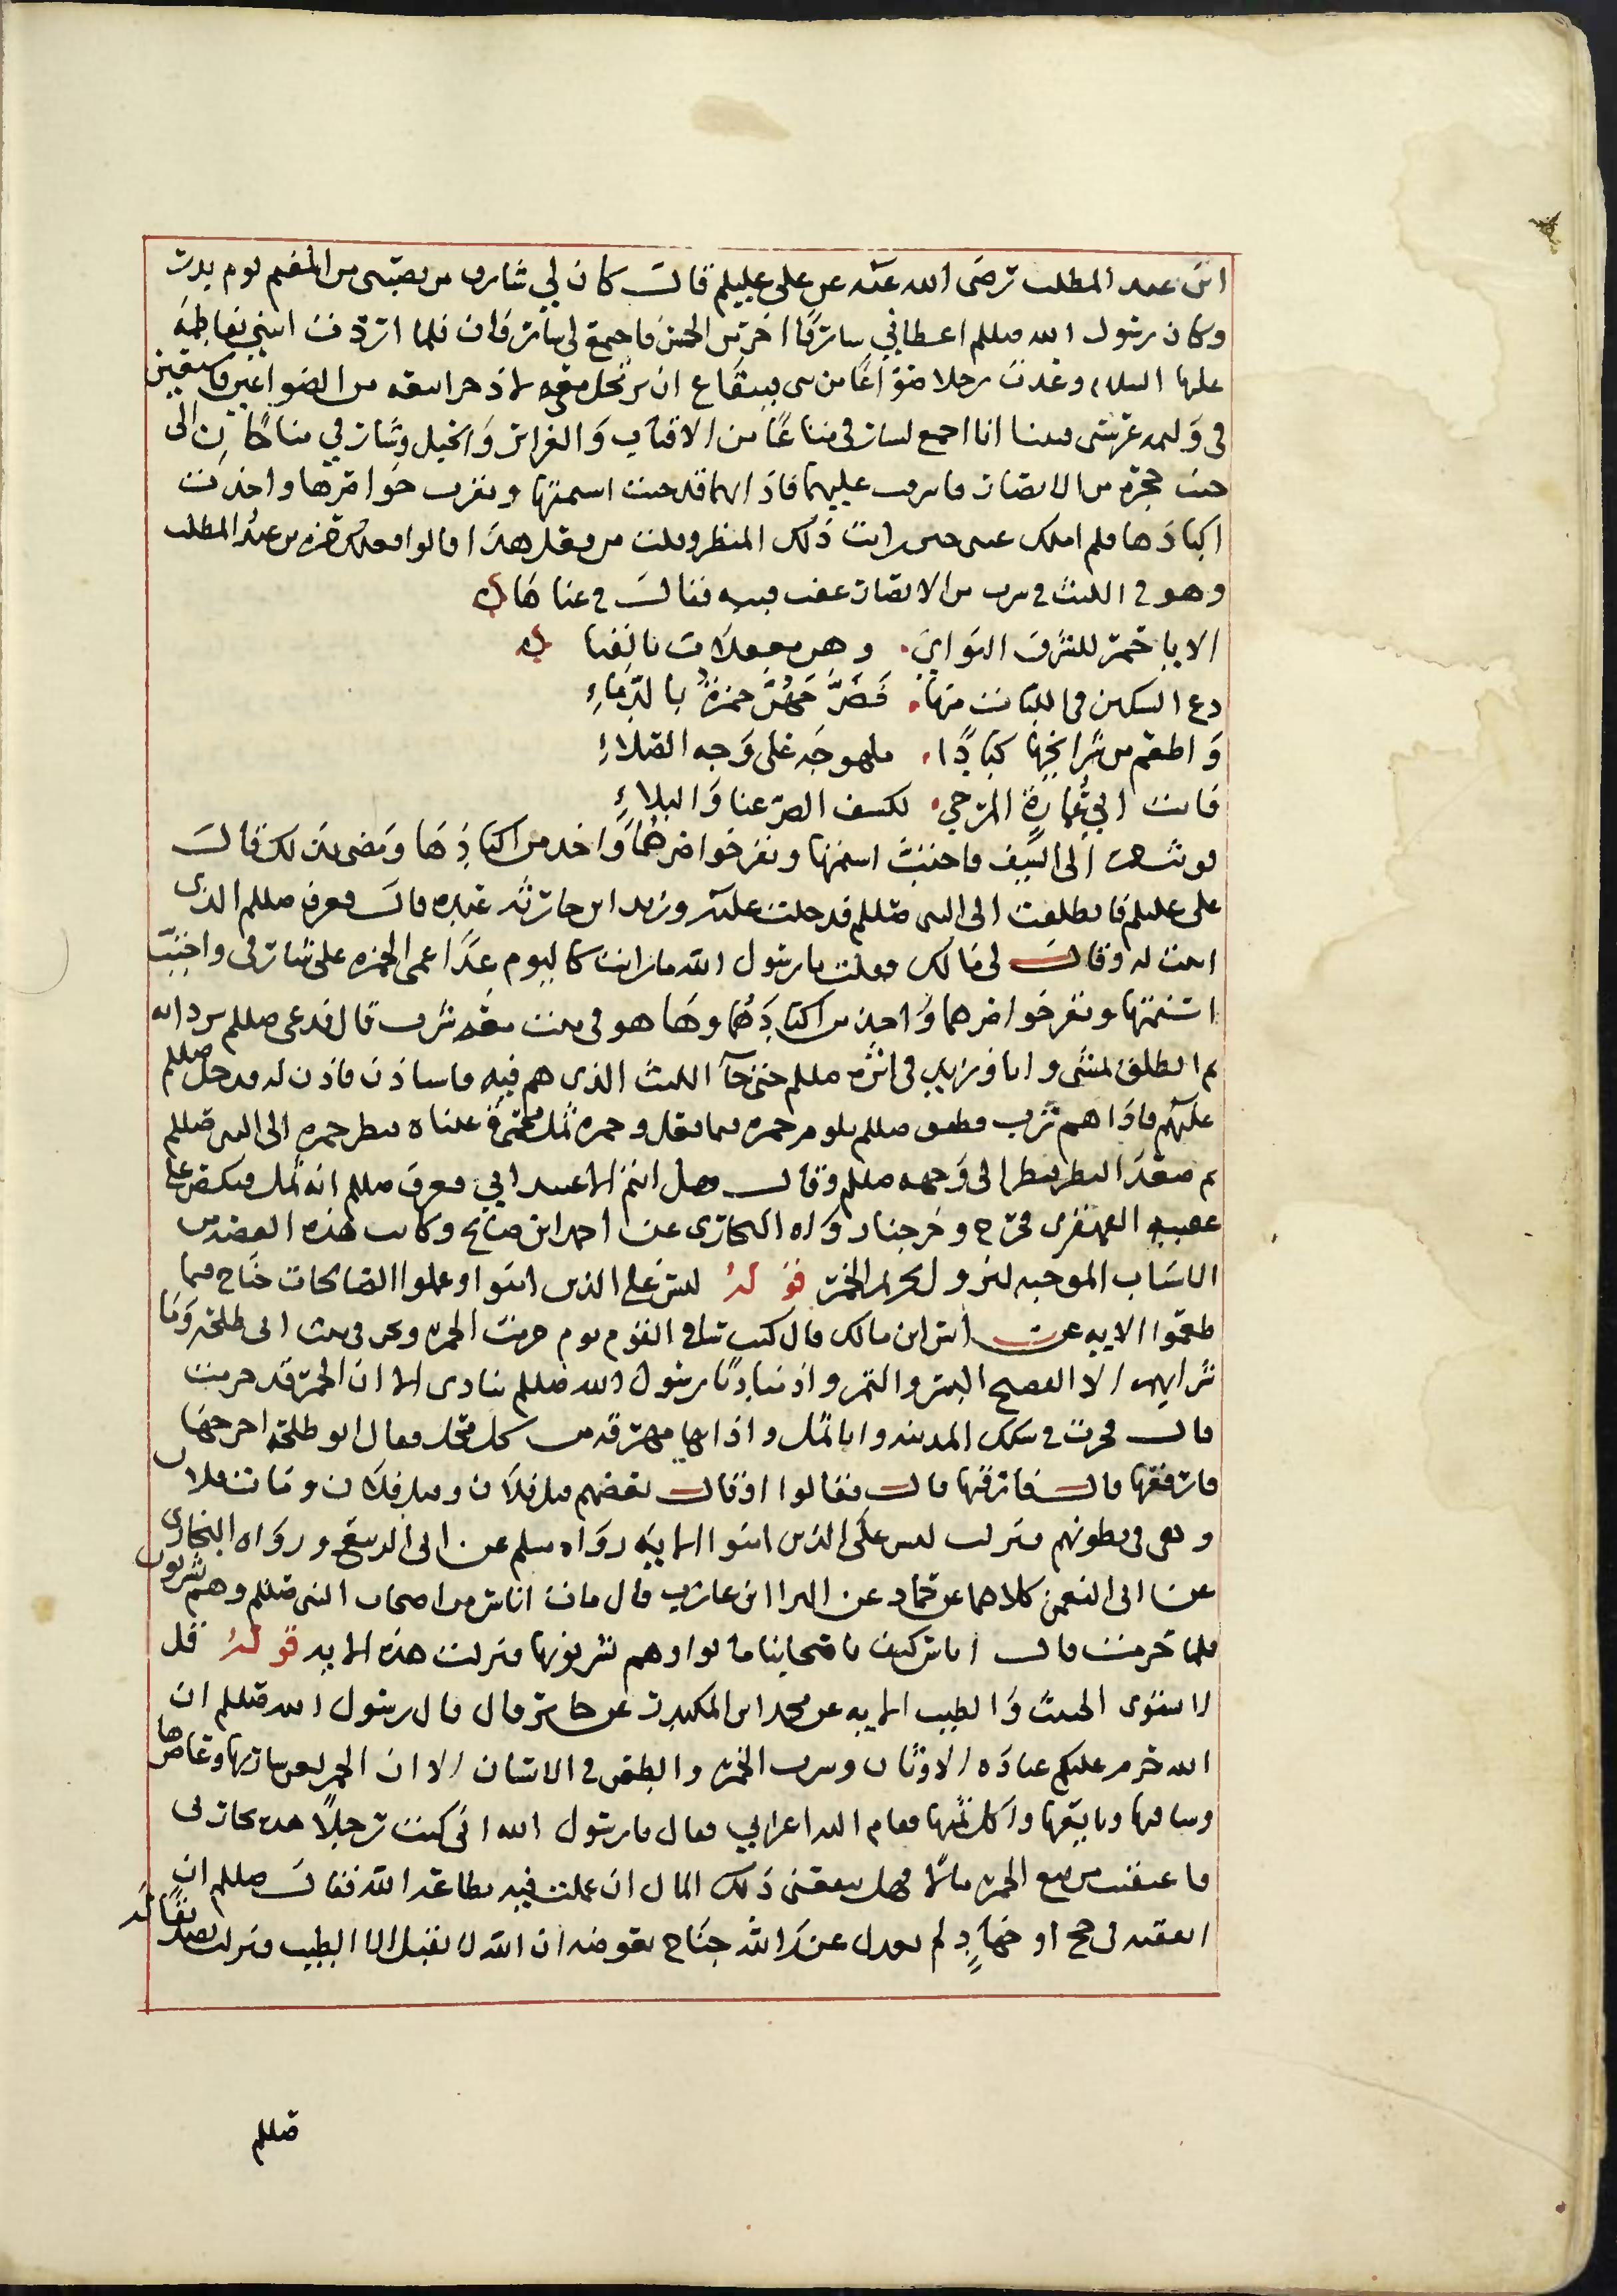 ابن عبد المطلب رضى الله عنه عن على عليلم قال كان لي شارف من نصيبى من المغنم يوم بدر
وكان رسول الله صللم اعطاني شارفا اخر من الخمس فاجتمع لي شارفان فلما اردت ابتني بفاطمة
عليها السلام وعدت رجلا صواغا من بني قينقاع ان يرتحل معي باذخر ابيعه من الصواغين فاستعين
في وليمه عرسي فبينا انا اجمع لشارفي متاعا من الاقتاب والغراير والحبل وشارفي مناخان الى
جنب حجرة من الانصار فاشرف عليهما فاذا بهما قد جبت اسنمتها وبقرت خواصرها واخذ من
اكبادها فلم املك عيني حين رايت ذلك المنظر وقلت من فعل هذا قالوا فعله حمزه بن عبد المطلب
وهو في البيت في شرب من الانصار عنت قينه فقالت في غناها
الا يا حمز للشرف النواي وهن معقلات بالفنا
دع السكين في اللبات منها فضرجهن حمزة بالدماء
واطعم من شرايحها كبابا ملهوجه على وجه الصلاء
فانت ابي عمارة المرجي لكشف الضر عنا والبلاء
فوثب الى السيف فاجتب اسنمتها وبقر خواصرهما واخذ من اكبادها ومضى بذلك قال
على عليلم فانطلقت الى النبي صللم فدخلت عليه وزيد ابن حارثه عنده قال فعرف صللم الذى
اتيت له وقال لى مالك فقلت يا رسول الله ما رايت كاليوم عدا عمي الحمزه على شارفي واجتب
اسنمتها وبقر خواصرهما واخذ من اكبادهما وها هو في بيت معه شرب قال فدعى صللم بردايه
ثم انطلق يمشى وانا وزيد في اثره صللم حتى جآ البيت الذى هم فيه فاستاذن فاذن له فدخل صللم
عليهم فاذا هم شرب فطفق صللم يلوم حمزه فيما فعل وحمزه ثمل محمرة عيناه فنظر حمزه الى النبي صللم
ثم صعد النظر فنظر الى وجهه صللم وقال وهل انتم الا عبيد ابي فعرف صللم انه ثمل فنكص على
عقبيه القهقرى فخرج وخرجنا رواه البخارى عن احمد ابن صالح وكانت هذه القصه من
الاسباب الموجبه لنزول تحريم الخمر قوله ليس على الذين امنوا وعملوا الصالحات جناح فيما
طعموا الايه عن انس ابن مالك قال كنت ساقى القوم يوم حرمت الخمره ونحن في بيت ابى طلحه وما
شرابهم الا الفضيح البسر والتمر واذ مناديا رسول الله صللم ينادى الا ان الخمر قد حرمت
قال فجرت في سكك المدينه وانا ثمل واذا بها مهرقه من كل محل فقال ابو طلحه اخرجها
فارقها قال فارقتها قال فقالوا او قال بعضهم قتل فلان وقتل فلان ومات فلان
وهى في بطونهم فنزلت ليس على الذين امنوا الايه رواه مسلم عن ابى الربيع ورواه البخارى
عن ابى النعمن كلاهما عن حماد عن البرا ابن عازب قال مات اناس من اصحاب النبى صللم وهم يشربون
فلما حرمت قال اناس كيف باصحابنا ماتوا وهم يشربونها فنزلت هذه الايه قوله قل
لا يستوى الخبيث والطيب الايه عن محمد ابن المكندر عن جابر قال قال رسول الله صللم ان
الله حرم عليكم عباده الاوثان وشرب الخمر والطعن في الانساب الا ان الخمر لعن شاربها وعاصرها
وساقيها وبايعها واكل ثمنها فقام اليه اعرابي فقال يا رسول الله انى كنت رجلا هذه تجارتى
فاعتقبت من بيع الخمره مالا فهل ينفعنى ذلك المال ان عملت فيه بطاعة الله فقال صللم ان
انفقته في حج او جهاد لم يعدل عند الله جناح بعوضه ان الله لا يقبل الا الطيب فنزلت تصديقا له
صللم